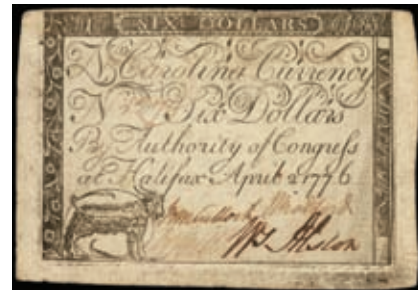 SIX DOLLARS
N Carolina Currency
N Six Dollars
By Authority of Congress
at Halifax April 2 1776